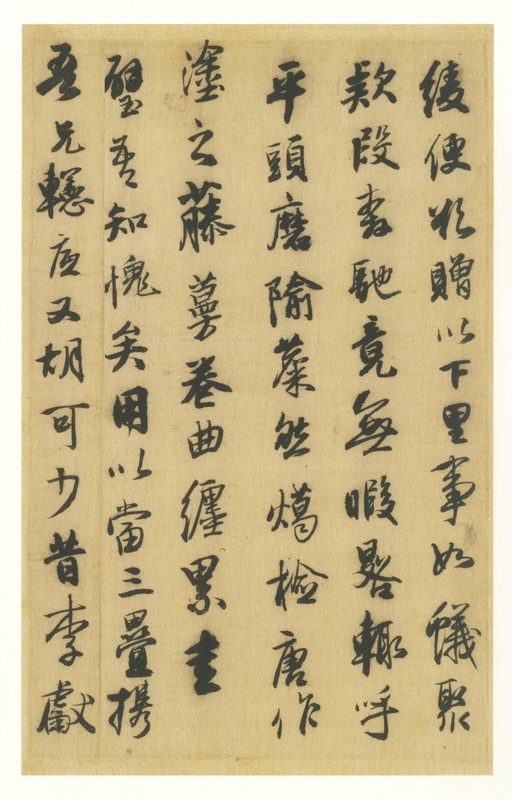 便於贈以下里事如蟻聚
欵段奔馳竟無暇晷輒呼
平頭磨隃麋然燭檢唐作
塗之藤蔓卷曲纏累圭
璧吾知愧矣用以當三疊携
吾兄應又胡可少昔李獻